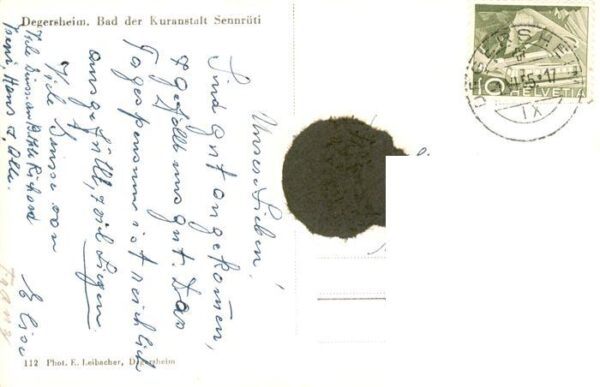 Degersheim. Bad der Kuranstalt Sennrüti
Unsere Lieben!
Sind gut angekommen,
es gefällt uns gut. Das
Tagespensum ist reichlich
ausgefüllt, zwei Liegen
Viele Grüsse von
Elise
Franz
Viele Grüsse an
Hans & Alle.
112 Phot. E. Leibacher, Degersheim
DEGERSHEIM
10
HELVETIA
IX